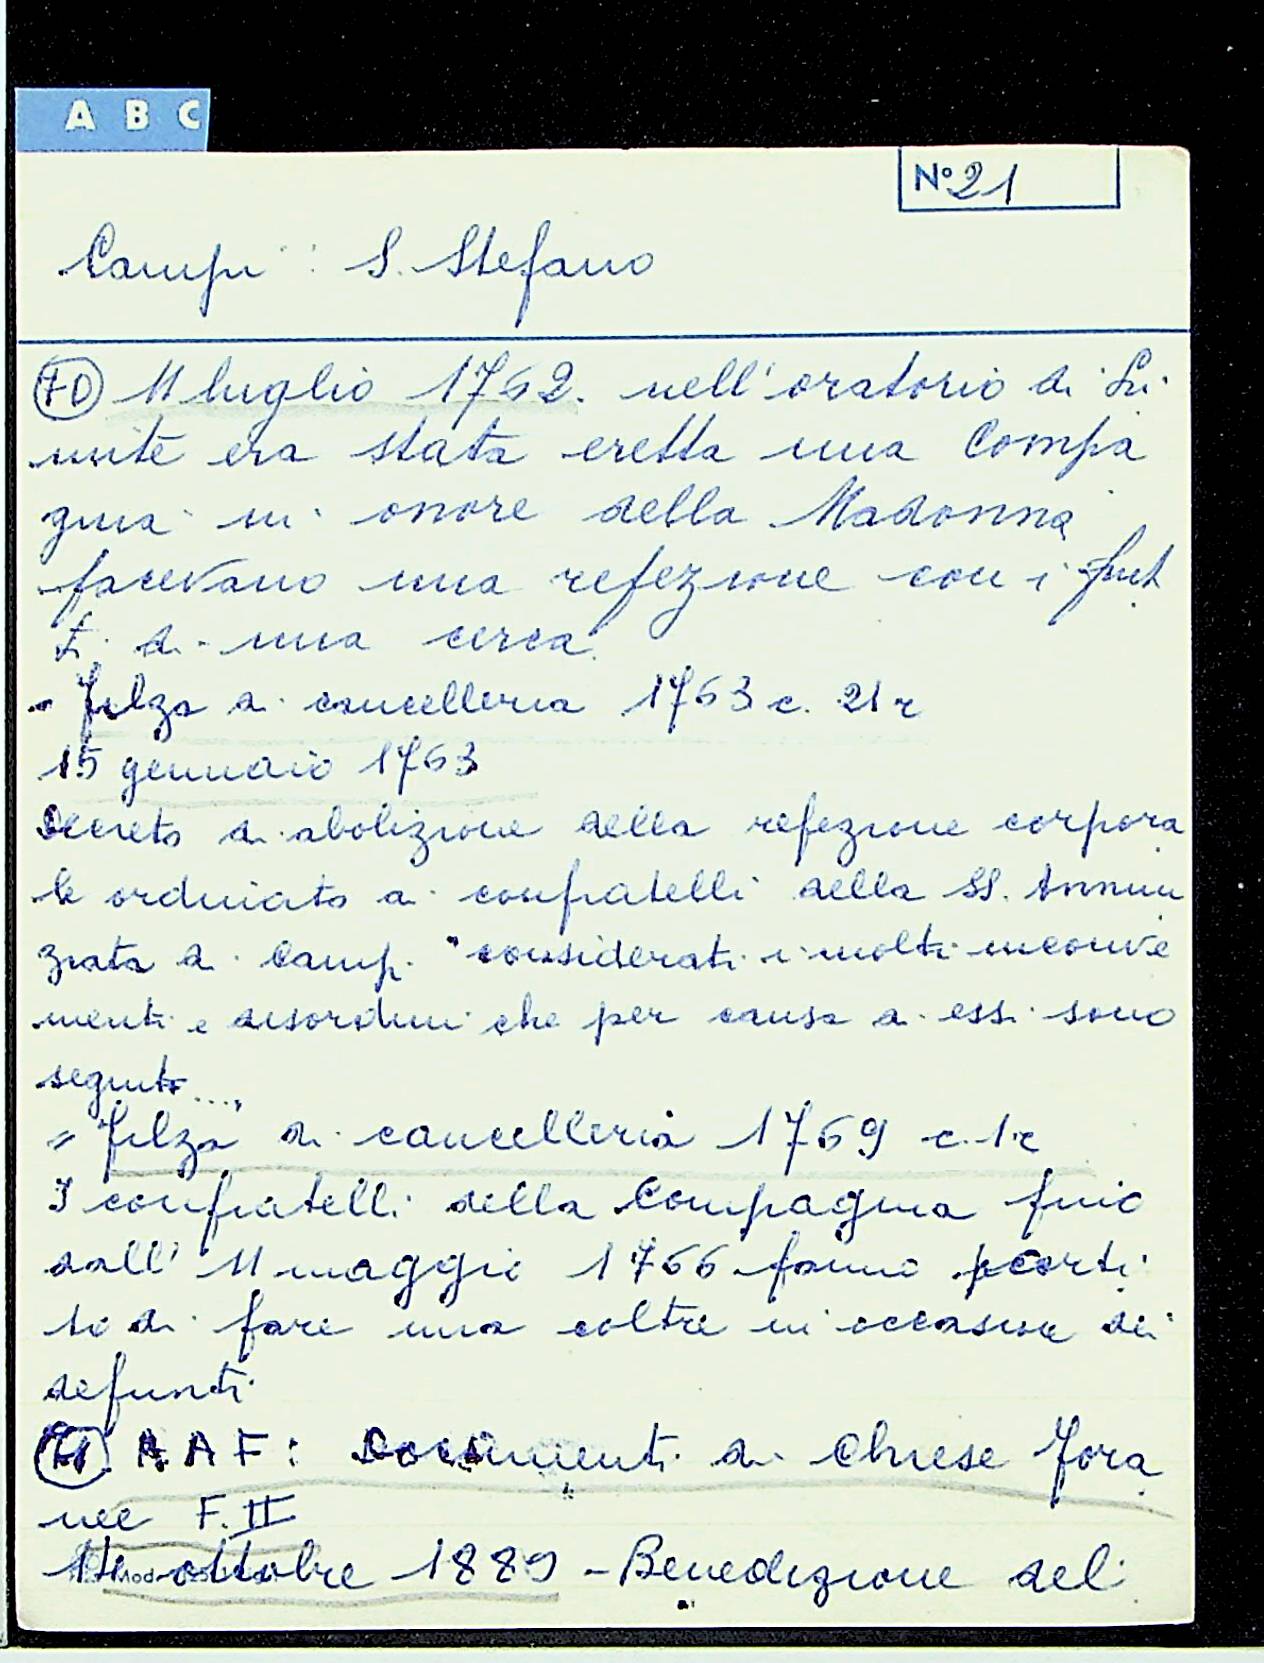 A B C
N° 21
Campi : S. Stefano
70 11 luglio 1762. nell'oratorio di Li
mite era stata eretta una Compa
gnia in onore della Madonna
facevano una refezione con i frut
ti di una cerca.
- Filza di cancelleria 1763 c. 21 r
15 gennaio 1763
Decreto di abolizione della refezione corpora
le ordiniato ai confratelli della SS. Annun
ziata di Campi "considerati i molti inconve
nienti e disordini che per causa di essi sono
seguiti...."
= Filza di cancelleria 1769 c. 1r
I confratelli della Compagnia fino
dall' 11 maggio 1766 fanno parti
to di fare una coltre in occasione dei
defunti
71 A A F: Documenti di Chiese Fora
nee F. II
ottobre 1889 - Benedizione del